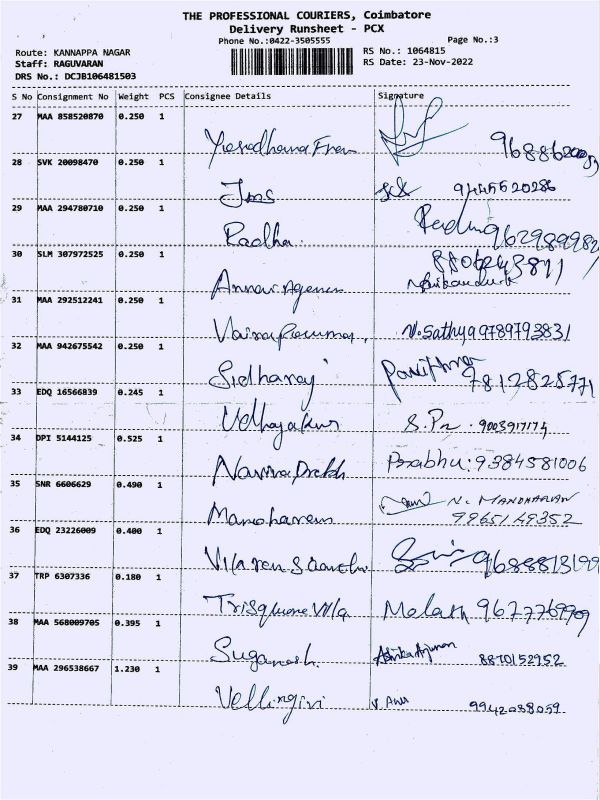 THE PROFESSIONAL COURIERS, Coimbatore
Delivery Runsheet - PCX
Phone No.:0422-3505555 Page No.:3
Route: KANNAPPA NAGAR RS No.: 1064815
Staff: RAGUVARAN RS Date: 23-Nov-2022
DRS No.: DCJB106481503
S No Consignment No Weight PCS Consignee Details Signature
27 MAA 858520870 0.250 1
28 SVK 20098470 0.250 1
Jms 9445520286
29 MAA 294780710 0.250 1
Radha
30 SLM 307972525 0.250 1
31 MAA 292512241 0.250 1
N.Sathya 9789793831
32 MAA 942675542 0.250 1
Sidharaj Pavithra 7812825771
33 EDQ 16566839 0.245 1
S.Pr. 9003917174
34 DPI 5144125 0.525 1
Prabhu: 9384581006
35 SNR 6606629 0.490 1
N. MANOHARAN
9965149352
36 EDQ 23226009 0.400 1
37 TRP 6307336 0.180 1
38 MAA 568009705 0.395 1
Suganesh. 8870152952
39 MAA 296538667 1.230 1
Vellingiri 9942038059